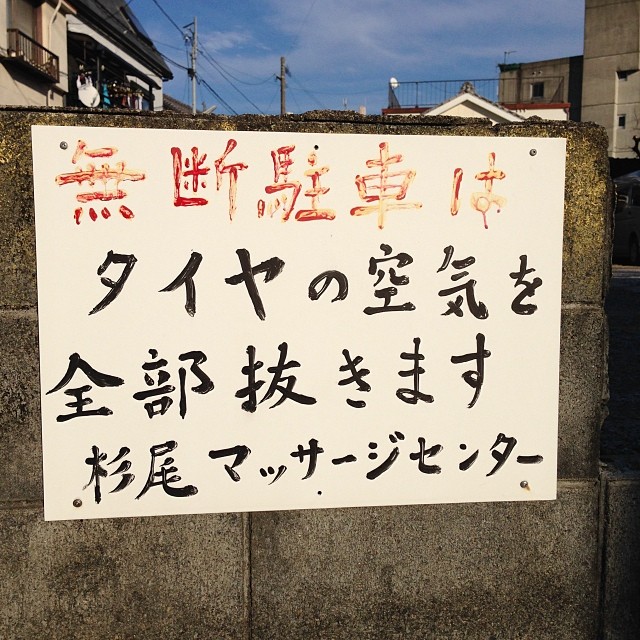 無断駐車は
タイヤの空気を
全部抜きます
杉尾マッサージセンター